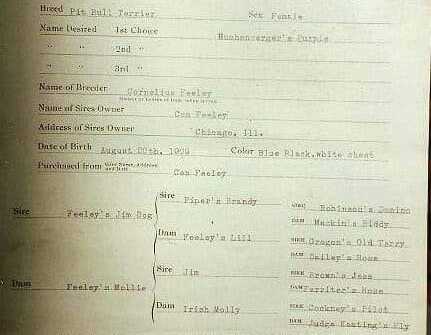 Breed Pit Bull Terrier Sex Female
Name Desired 1st Choice Hunhenberger's Purple
" " 2nd "
" " 3rd "
Name of Breeder Cornelius Feeley
Name of Sires Owner Con Feeley
Address of Sires Owner Chicago, Ill.
Date of Birth August 20th, Color Blue Black, white chest
Purchased from Con Feeley
Sire Piper's Brandy
SIRE Robinson's Domino
DAM Mackin's Biddy
Sire Feeley's Jim Dog
Dam Feeley's Lill
SIRE Gregon's Old Terry
DAM Dailey's Rose
Sire Jim
SIRE Brown's Jess
Dam Feeley's Mollie
DAM Ferriter's Rose
Dam Irish Molly
SIRE Cockney's Pilot
DAM Judge Keating's Fly